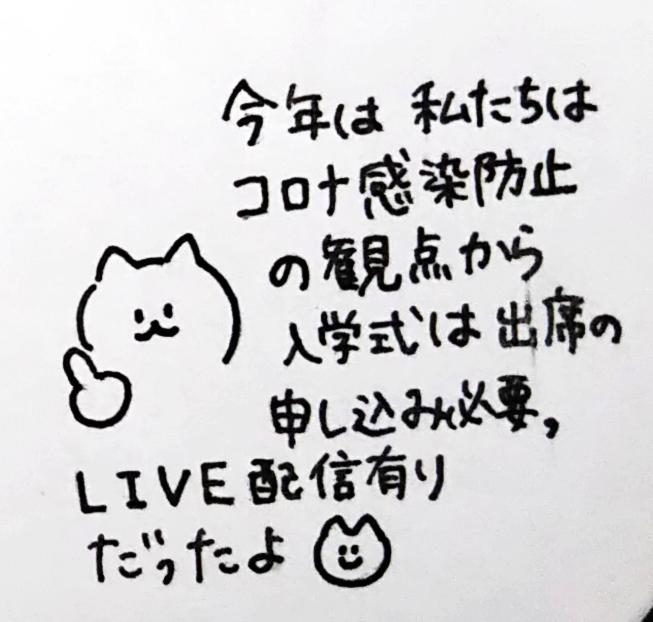 今年は 私たちは
コロナ感染防止
の観点から
入学式は出席の
申し込み必要,
LIVE配信有り
だったよ